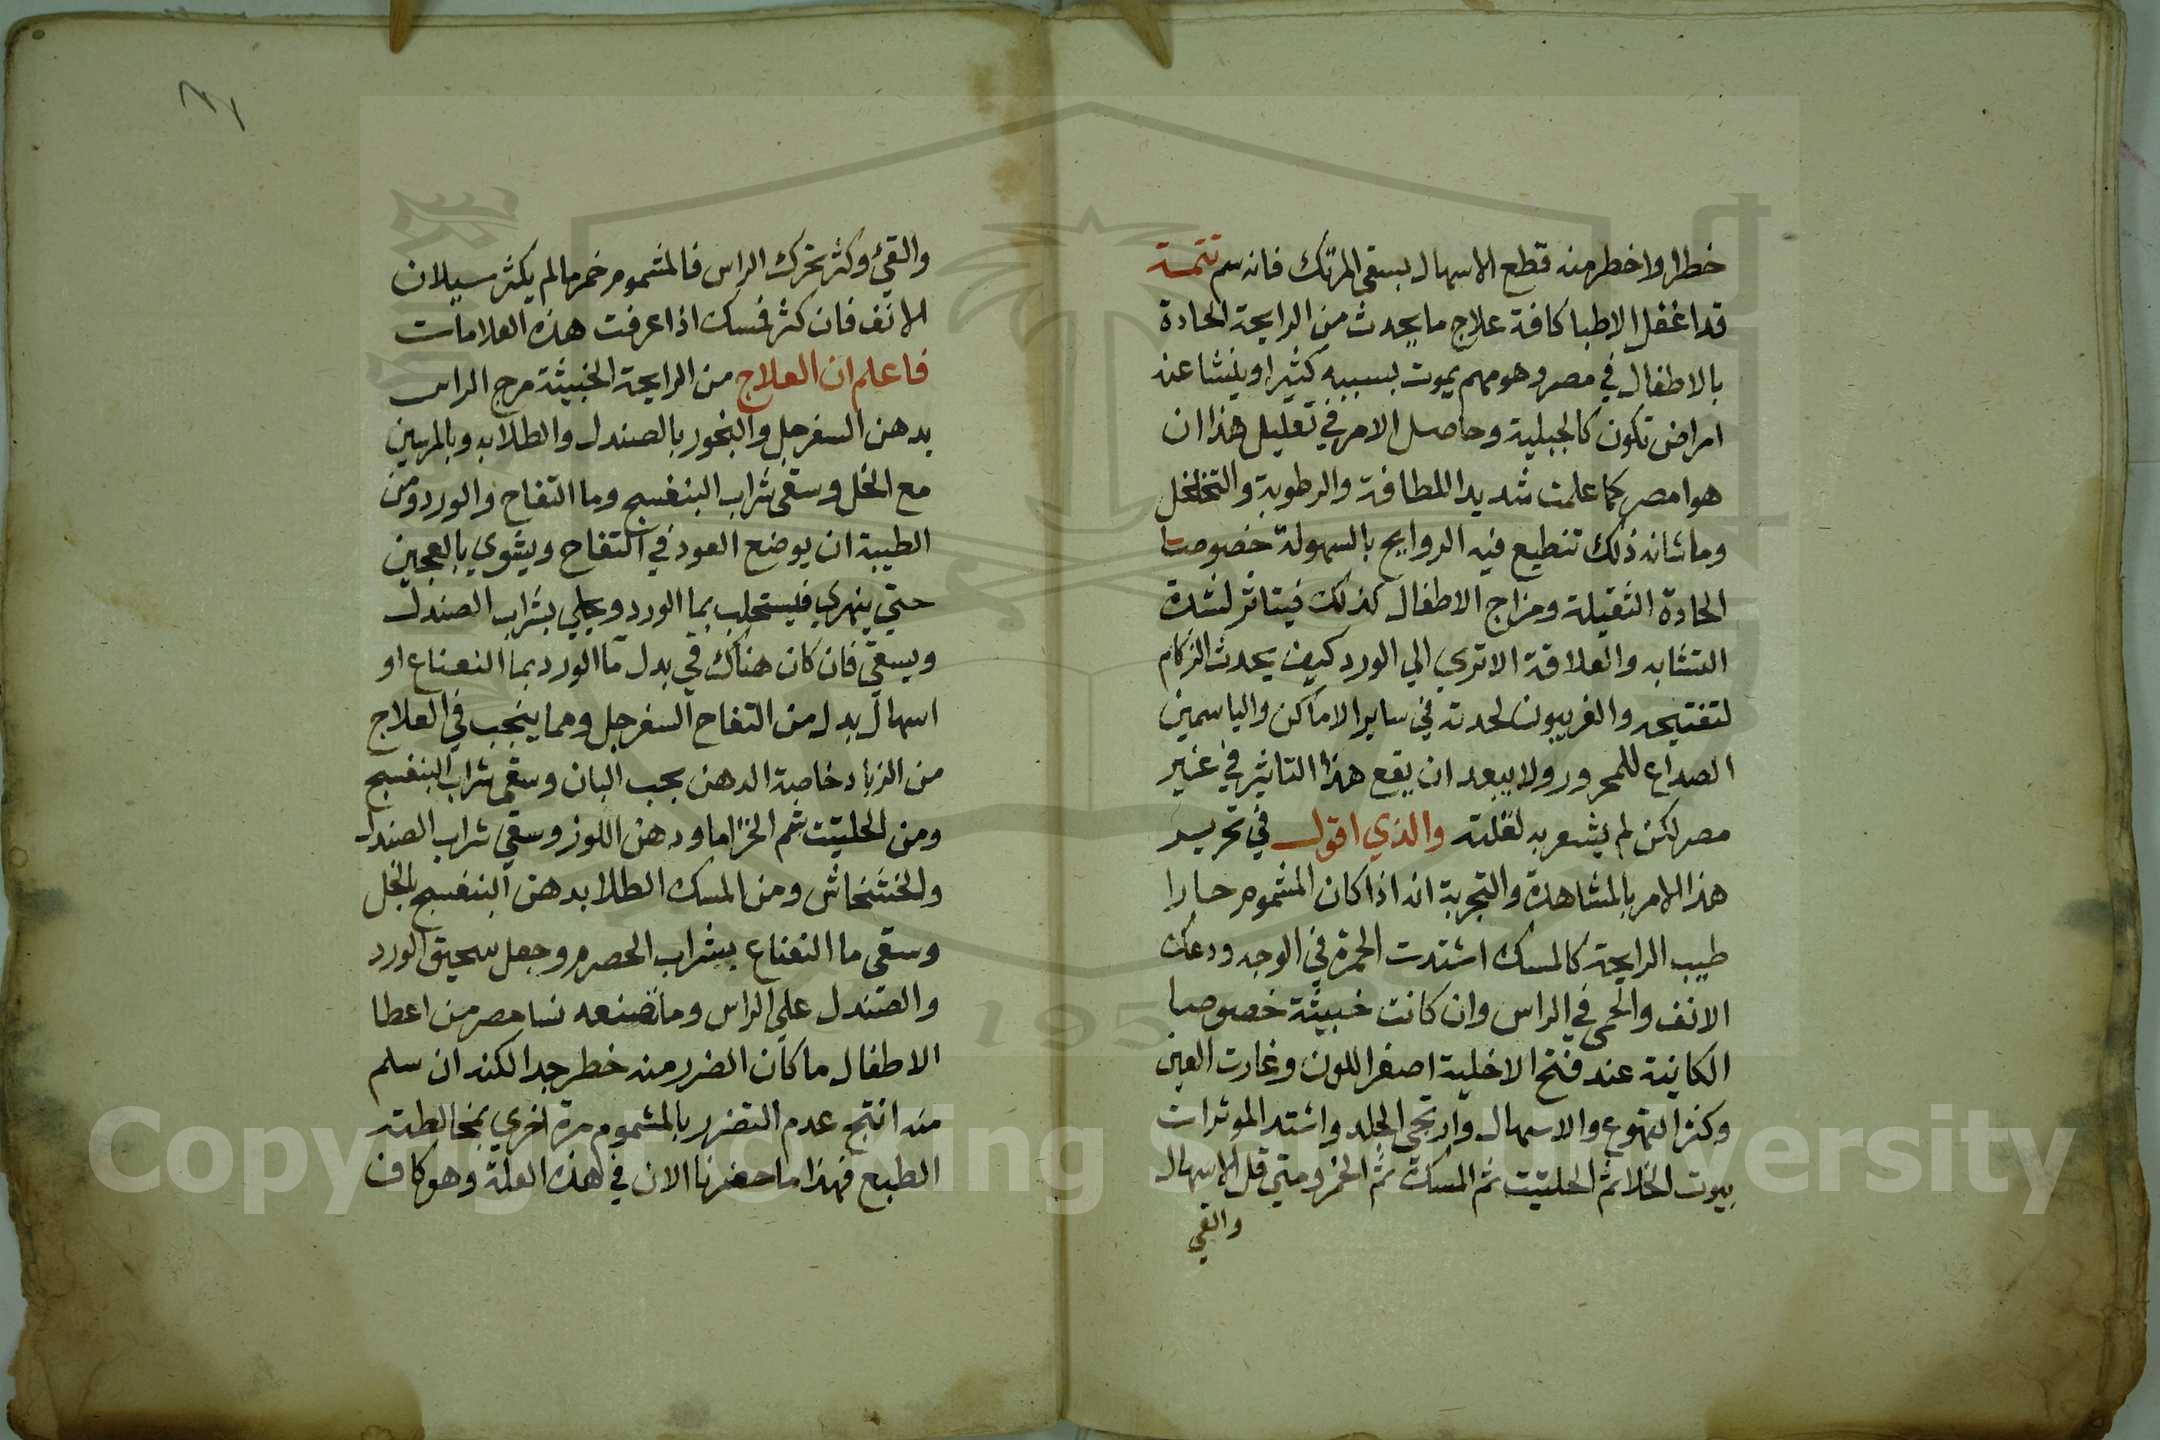 خطرا واخطر منه قطع الاسهال بسقي المرتك فانه سم تتمة
قد اغفل الاطبا كافة علاج ما يحدث من الرايحة الحادة
بالاطفال في مصر وهو مهم يموت بسببه كثيرا وينشا عنه
امراض تكون كالجبلية وحاصل الامر في تعليل هذا ان
هوا مصر كما علمت شديد اللطافة والرطوبة والتخلخل
وما شانه ذلك تنطبع فيه الروايح بالسهولة خصوصا
الحادة الثقيلة ومزاج الاطفال كذلك فيتاثر لشدة
التشابه والعلاقة الا تري الي الورد كيف يحدث الزكام
لتفتيحه والغريبون لحدته في ساير الاماكن والياسمين
الصداع للمحرور ولا يبعد ان يقع هذا التاثير في غير
مصر لكن لم يشعر به لقلته والذي اقول في تحرير
هذا الامر بالمشاهدة والتجربة انه اذا كان المشموم حارا
طيب الرايحة كالمسك اشتدت الحمرة في الوجه ودعك
الانف والحمي في الراس وان كانت خبيثة خصوصا
الكاينة عند فتح الاخلية اصفر اللون وغارت العين
وكثر التهوع والاسهال وارتخي الجلد واشتد الموثرات
بيوت الخلا ثم الحلتيت ثم المسك ثم الخمر ومتي قل الاسهال
والقي
والقيء وكثر تحرك الراس فالمشموم خمر ما لم يكثر سيلان
الانف فان كثر فمسك اذا عرفت هذه العلامات
فاعلم ان العلاج من الرايحة الخبيثة مرج الراس
بدهن السفرجل والبخور بالصندل والطلا به وبالمرسين
مع الخل وسقي شراب البنفسج وما التفاح والورد ومن
الطيبة ان يوضع العود في التفاح ويشوي بالعجين
حتي ينهري فيستحلب بما الورد ويحلي بشراب الصندل
ويسقي فان كان هناك قي بدل ما الورد بما النعناع او
اسهال بدل من التفاح السفرجل ومما ينجب في العلاج
من الزباد خاصة الدهن بحب البان وسقي شراب البنفسج
ومن الحلتيت شم الخزاما ودهن اللوز وسقي شراب الصندل
والخشخاش ومن المسك الطلا بدهن البنفسج بالخل
وسقي ما النعناع بشراب الحصرم وجعل سحيق الورد
والصندل علي الراس وما تصنعه نسا مصر من اعطا
الاطفال ما كان الضرر منه خطر جدا لكنه ان سلم
منه انتج عدم التضرر بالمشموم مرة اخري لمخالطته
الطبع فهذا ما حضرنا الان في هذه العلة وهو كاف
1957
Copyright © King Saud University